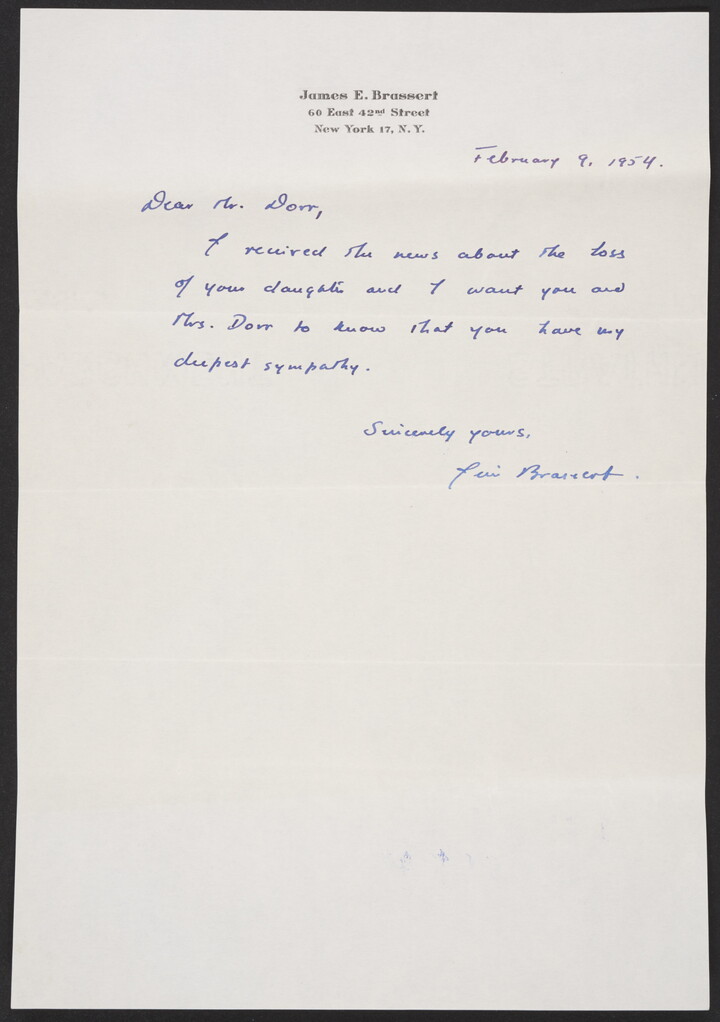 James E. Brassert
60 East 42nd Street
New York 17, N. Y.
February 9, 1954.
Dear Mr. Dorr,
I received the news about the loss
of your daughter and I want you and
Mrs. Dorr to know that you have my
deepest sympathy.
Sincerely yours,
Jim Brassert.